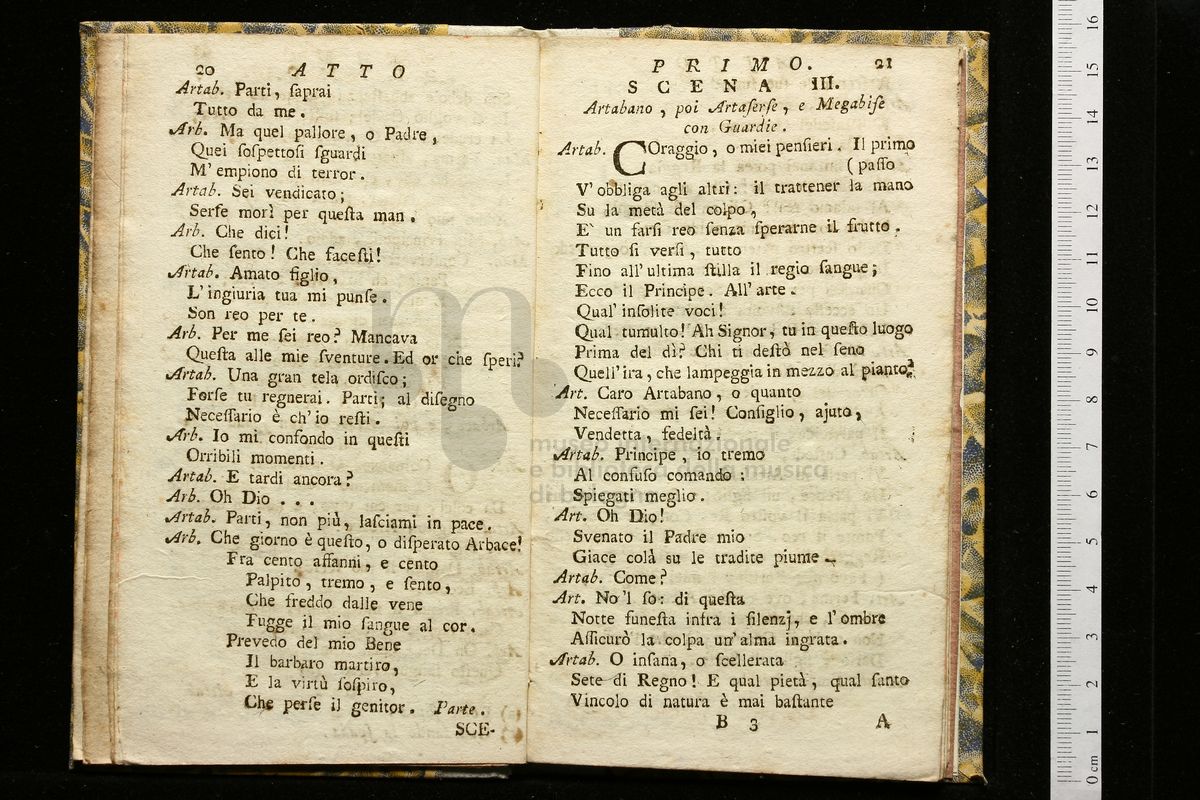 20 ATTO
Artab. Parti, ſaprai
Tutto da me.
Arb. Ma quel pallore, o Padre,
Quei ſoſpettoſi ſguardi
M'empiono di terror.
Artab. Sei vendicato;
Serſe morì per queſta man.
Arb. Che dici!
Che ſento! Che faceſti!
Artab. Amato figlio,
L'ingiuria tua mi punſe.
Son reo per te.
Arb. Per me ſei reo? Mancava
Queſta alle mie ſventure. Ed or che ſperi?
Artab. Una gran tela ordiſco;
Forſe tu regnerai. Parti; al diſegno
Neceſſario è ch'io reſti.
Arb. Io mi confondo in queſti
Orribili momenti.
Artab. E tardi ancora?
Arb. Oh Dio . . .
Artab. Parti, non più, laſciami in pace.
Arb. Che giorno è queſto, o diſperato Arbace!
Fra cento affanni, e cento
Palpito, tremo, e ſento,
Che freddo dalle vene
Fugge il mio ſangue al cor.
Prevedo del mio Bene
Il barbaro martiro,
E la virtù ſoſpiro,
Che perſe il genitor. Parte.
SCE-
PRIMO. 21
SCENA III.
Artabano, poi Artaſerſe, e Megabiſe
con Guardie.
Artab. COraggio, o miei penſieri. Il primo
(paſſo
V'obbliga agli altri: il trattener la mano
Su la metà del colpo,
E` un farſi reo ſenza ſperarne il frutto.
Tutto ſi verſi, tutto
Fino all'ultima ſtilla il regio ſangue;
Ecco il Principe. All'arte.
Qual' inſolite voci!
Qual tumulto! Ah Signor, tu in queſto luogo
Prima del dì? Chi ti deſtò nel ſeno
Quell'ira, che lampeggia in mezzo al pianto?
Art. Caro Artabano, o quanto
Neceſſario mi ſei! Conſiglio, ajuto,
Vendetta, fedeltà.
Artab. Principe, io tremo
Al confuſo comando:
Spiegati meglio.
Art. Oh Dio!
Svenato il Padre mio
Giace colà su le tradite piume.
Artab. Come?
Art. No'l ſo: di queſta
Notte funeſta infra i ſilenzj, e l'ombre
Aſſicurò la colpa un'alma ingrata.
Artab. O inſana, o ſcellerata
Sete di Regno! E qual pietà, qual ſanto
Vincolo di natura è mai baſtante
B 3 A
museo internazionale
e biblioteca della musica
di bologna
0 cm 1 2 3 4 5 6 7 8 9 10 11 12 13 14 15 16